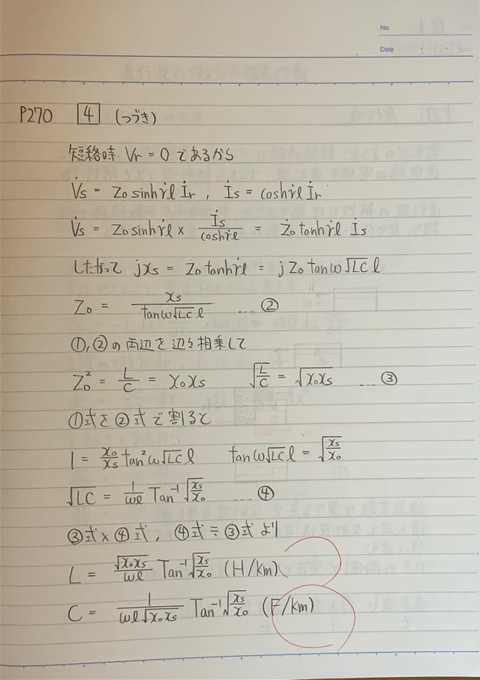 No.
Date
P270 4 (つづき)
短絡時 Vr = 0 であるから
V̇s = Z₀ sinh γ̇l İr , İs = cosh γ̇l İr
V̇s = Z₀ sinh γ̇l × İs / cosh γ̇l = Ż₀ tanh γ̇l İs
したがって jxs = Z₀ tanh γ̇l = j Z₀ tan ω√LC l
Z₀ = xs / tan ω√LC l ……②
①,②の両辺を辺々相乗して
Z₀² = L/C = x₀xs √(L/C) = √x₀xs ……③
①式を②式で割ると
1 = x₀/xs tan² ω√LC l tan ω√LC l = √(xs/x₀)
√LC = 1/ωl Tan⁻¹ √(xs/x₀) ……④
③式×④式, ④式÷③式より
L = √x₀xs / ωl Tan⁻¹ √(xs/x₀) (H/km)
C = 1 / ωl√x₀xs Tan⁻¹ √(xs/x₀) (F/km)